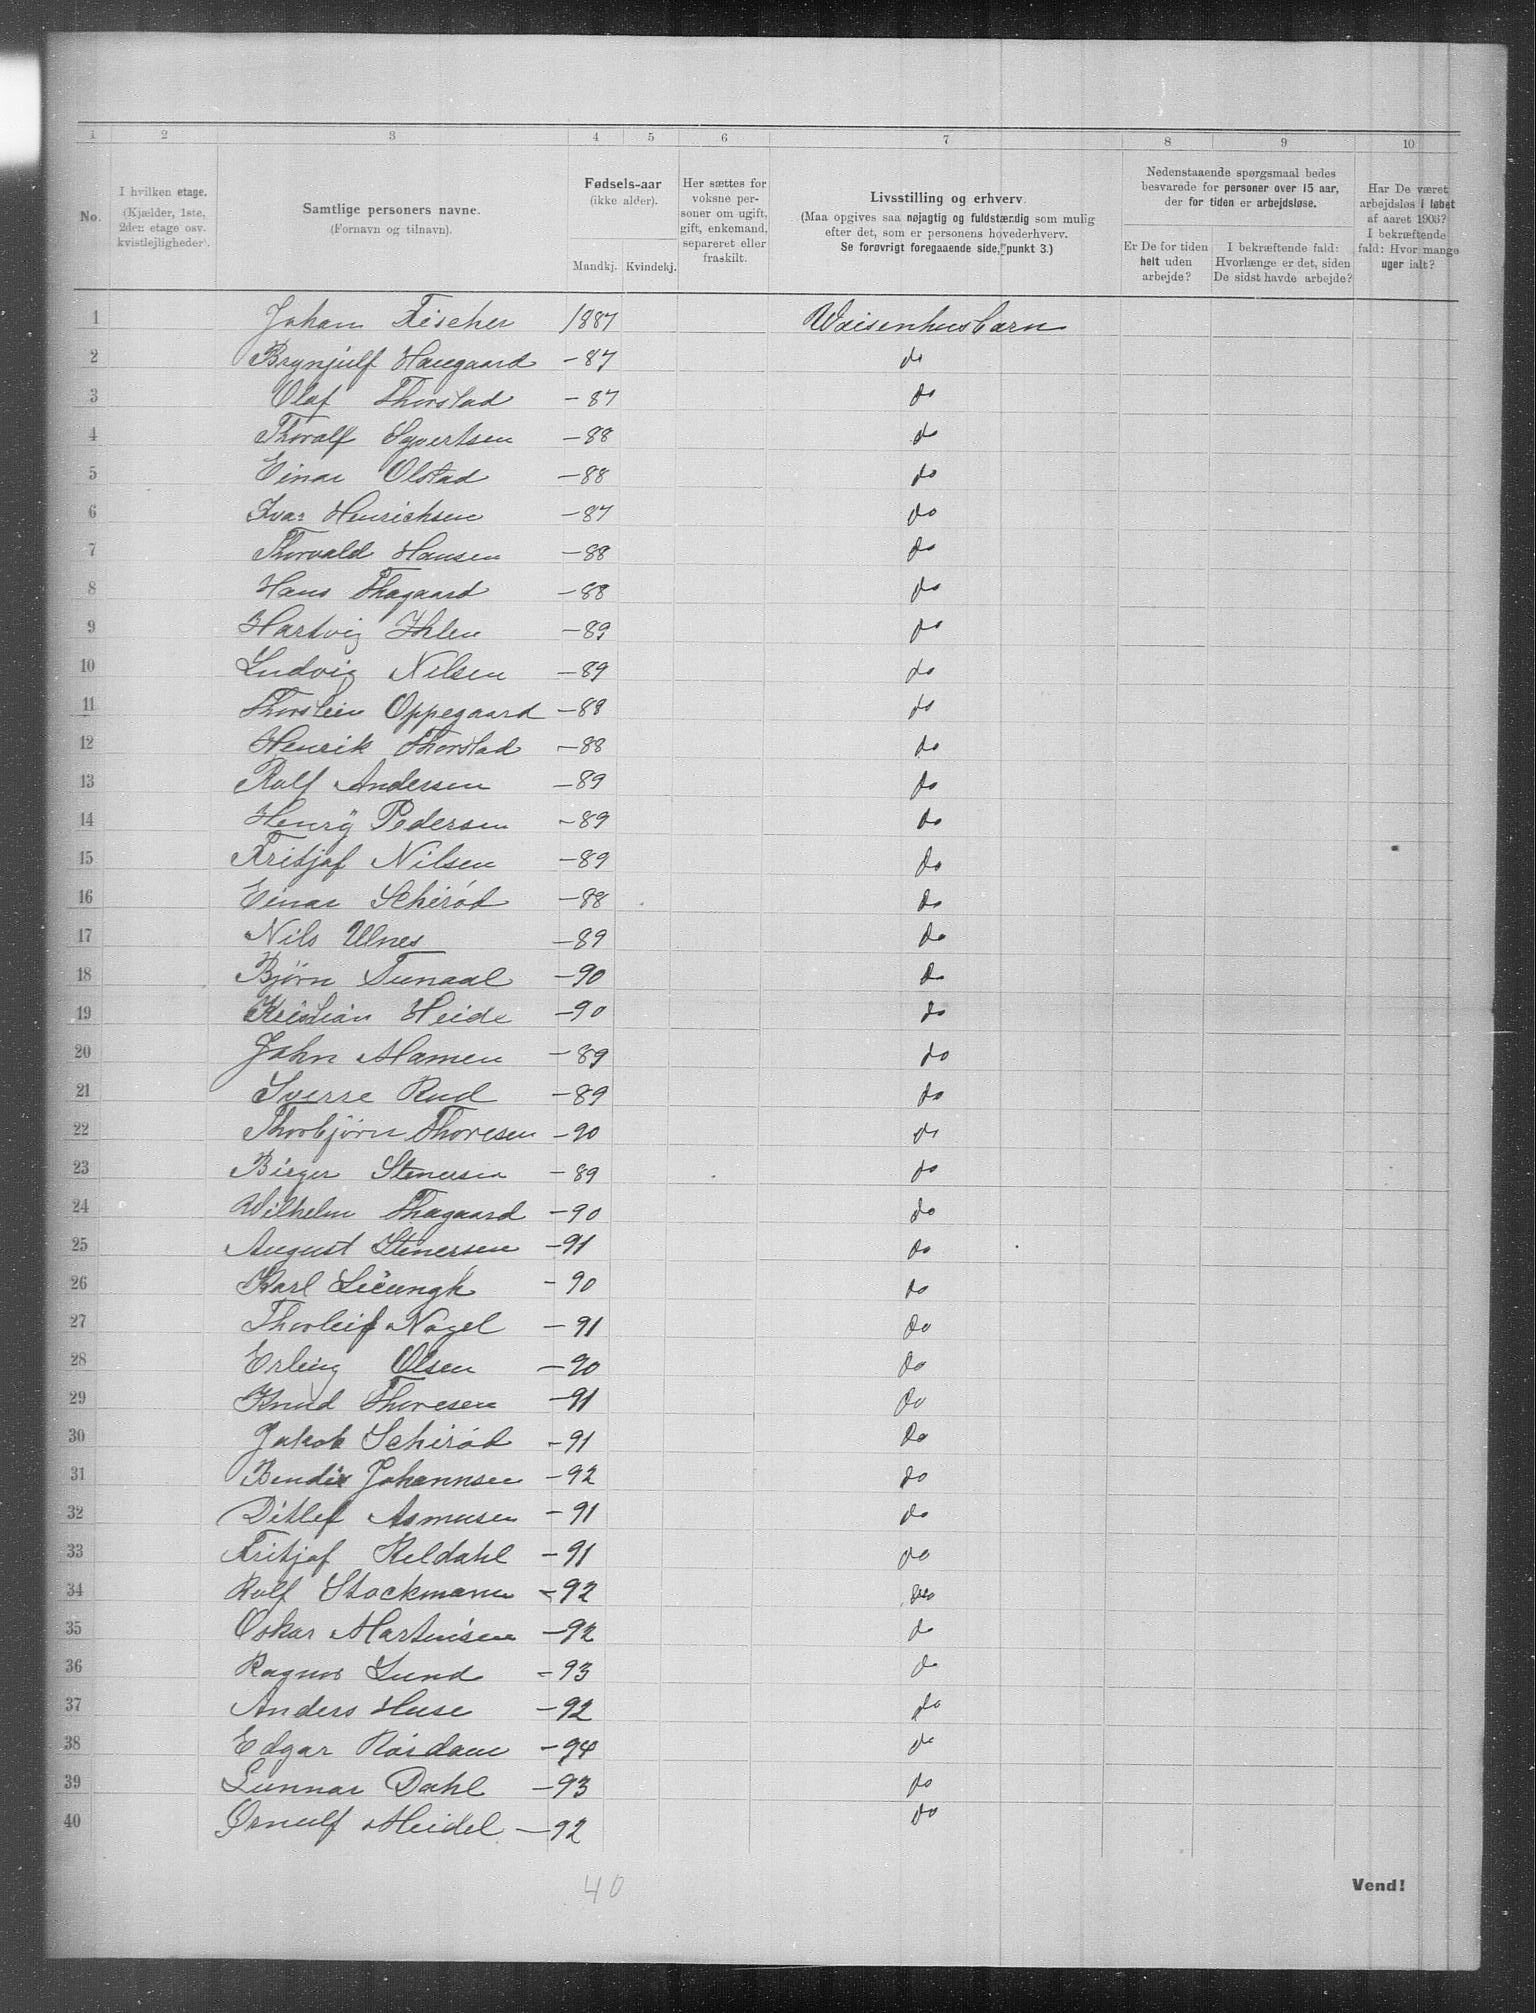 1 2 3 4 5 6 7 8 9 10
No.
I hvilken etage. (Kjælder, 1ste, 2den etage osv. kvistlejligheder).
Samtlige personers navne. (Fornavn og tilnavn).
Fødsels-aar (ikke alder).
Mandkj. Kvindekj.
Her sættes for voksne personer om ugift, gift, enkemand, separeret eller fraskilt.
Livsstilling og erhverv.
(Maa opgives saa nøjagtig og fuldstærdig som mulig efter det, som er personens hovederhverv.
Se forøvrigt foregaaende side, punkt 3.)
Nedenstaaende spørgsmaal bedes besvarede for personer over 15 aar, der for tiden er arbejdsløse.
Er De for tiden helt uden arbejde?
I bekræftende fald: Hvorlænge er det, siden De sidst havde arbejde?
Har De været arbejdsløs i løbet af aaret 1903? I bekræftende fald: Hvor mange uger ialt?
1 Johan Fischer 1887 Waisenhusbarn
2 Brynjulf Haugaard -87 do
3 Olaf Thorstad -87 do
4 Thoralf Syvertsen -88 do
5 Einar Olstad -88 do
6 Ivar Henrichsen -87 do
7 Thorvald Hansen -88 do
8 Hans Thagaard -88 do
9 Hartvig Ihlen -89 do
10 Ludvig Nilsen -89 do
11 Thorstein Oppegaard -88 do
12 Henrik Thorstad -88 do
13 Rolf Andersen -89 do
14 Henry Pedersen -89 do
15 Fritjof Nilsen -89 do
16 Einar Schirød -88 do
17 Nils Ulnes -89 do
18 Bjørn Tunaal -90 do
19 Kristian Heide -90 do
20 John Mamen -89 do
21 Sverre Rud -89 do
22 Thorbjørn Thoresen -90 do
23 Birger Stenersen -89 do
24 Wilhelm Thagaard -90 do
25 August Stenersen -91 do
26 Karl -90 do
27 Thorleif Nagel -91 do
28 Erling Olsen -90 do
29 Knud Thoresen -91 do
30 Jakob Schirød -91 do
31 Bendix Johannsen -92 do
32 Ditlef Asmusen -91 do
33 Fritjof Reldahl -91 do
34 Rolf Stockmann -92 do
35 Oskar Martinsen -92 do
36 Ragnar Lund -93 do
37 Anders Huse -92 do
38 Edgar Roidam -94 do
39 Gunnar Dahl -93 do
40 Ørnulf Meidel -92 do
40
Vend!